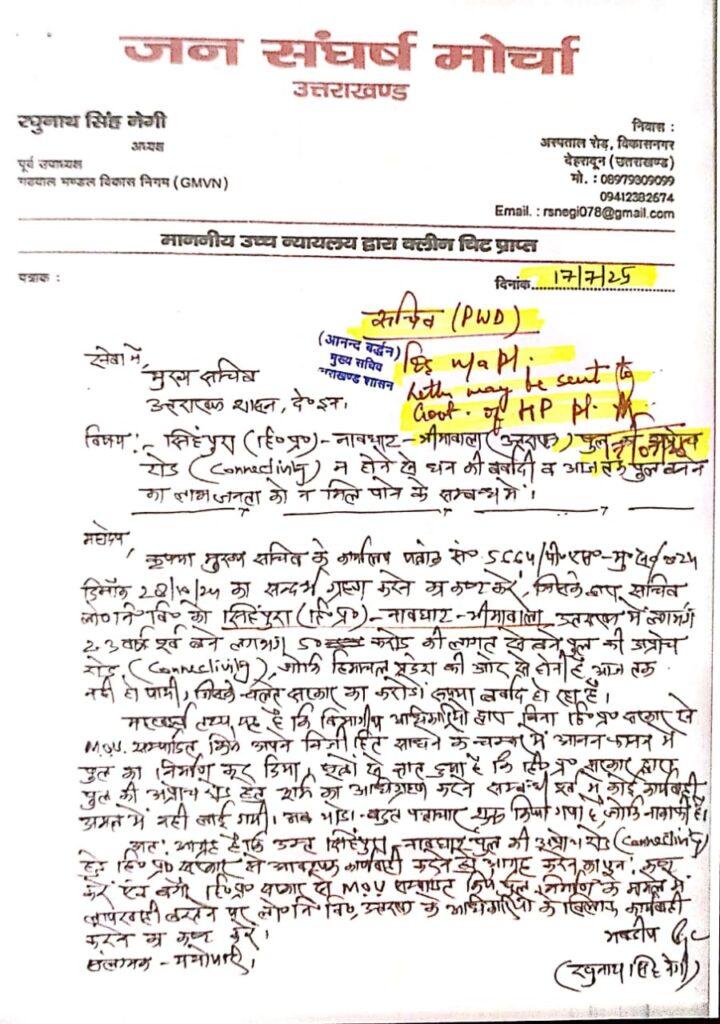 जन संघर्ष मोर्चा
उत्तराखण्ड
रघुनाथ सिंह नेगी
अध्यक्ष
पूर्व उपाध्यक्ष
गढवाल मण्डल विकास निगम (GMVN)
निवास :
अस्पताल रोड़, विकासनगर
देहरादून (उत्तराखण्ड)
मो. : 08979309099
09412382674
Email. : rsnegi078@gmail.com
माननीय उच्च न्यायलय द्वारा क्लीन चिट प्राप्त
पत्राक :
दिनांक 17/7/25
सचिव (PWD)
(आनन्द बर्द्धन)
मुख्य सचिव
उत्तराखण्ड शासन
n/a pl.
Letter may be sent to
Govt. of HP pl.
सेवा में,
मुख्य सचिव
उत्तराखण्ड शासन, दे०दून।
विषय :- सिंहपुरा (हि०प्र०) - नावघाट - भीमावाला (उत्तराखण्ड) पुल की अप्रोच
रोड (Connectivity) न होने से धन की बर्बादी व आज तक पुल बनने
का लाभ जनता को न मिल पाने के सम्बन्ध में।
महोदय,
कृपया मुख्य सचिव के कार्यालय पत्रांक सं०
दिनांक 28/10/24 का सन्दर्भ ग्रहण करने का कष्ट करें, जिसके द्वारा सचिव
लो०नि०वि० को सिंहपुरा (हि०प्र०) - नावघाट - भीमावाला उत्तराखण्ड में लगभग
2-3 वर्ष पूर्व बने लगभग 50 करोड़ की लागत से बने पुल की अप्रोच
रोड (Connectivity), जोकि हिमाचल प्रदेश की ओर से होनी है, आज तक
नहीं हो पायी, जिसके चलते सरकार का करोड़ों रुपया बर्बाद हो रहा है।
महत्वपूर्ण तथ्य यह है कि विभागीय अधिकारियों द्वारा बिना हि०प्र० सरकार से
M.O.U. सम्पादित किये अपने निजी हित साधने के चक्कर में आनन फानन में
पुल का निर्माण कर दिया। सूत्रों से ज्ञात हुआ है कि हि०प्र० सरकार द्वारा
पुल की अप्रोच रोड हेतु भूमि का अधिग्रहण करने सम्बन्धी पूर्व में कोई कार्यवाही
अमल में नहीं लाई गयी। अब थोड़ा-बहुत पत्राचार शुरू किया गया है, जोकि नाकाफी है।
अतः आग्रह है कि उक्त सिंहपुरा - नावघाट पुल की अप्रोच रोड (Connectivity)
हेतु हि०प्र० सरकार से आवश्यक कार्यवाही करने का आग्रह करने का पुनः कष्ट
करें एवं बगैर हि०प्र० सरकार से M.O.U सम्पादित किये पुल निर्माण के मामले में
लापरवाही बरतने पर लो०नि०वि०, उत्तराखण्ड के अधिकारियों के खिलाफ कार्यवाही
करने का कष्ट करें।
संलग्नक - यथोपरि।
भवदीय
(रघुनाथ सिंह नेगी)